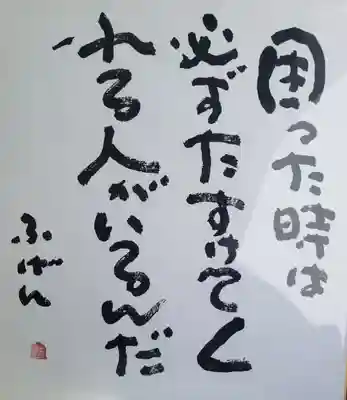 困った時は
必ずたすけてく
れる人がいるんだ
ふげん